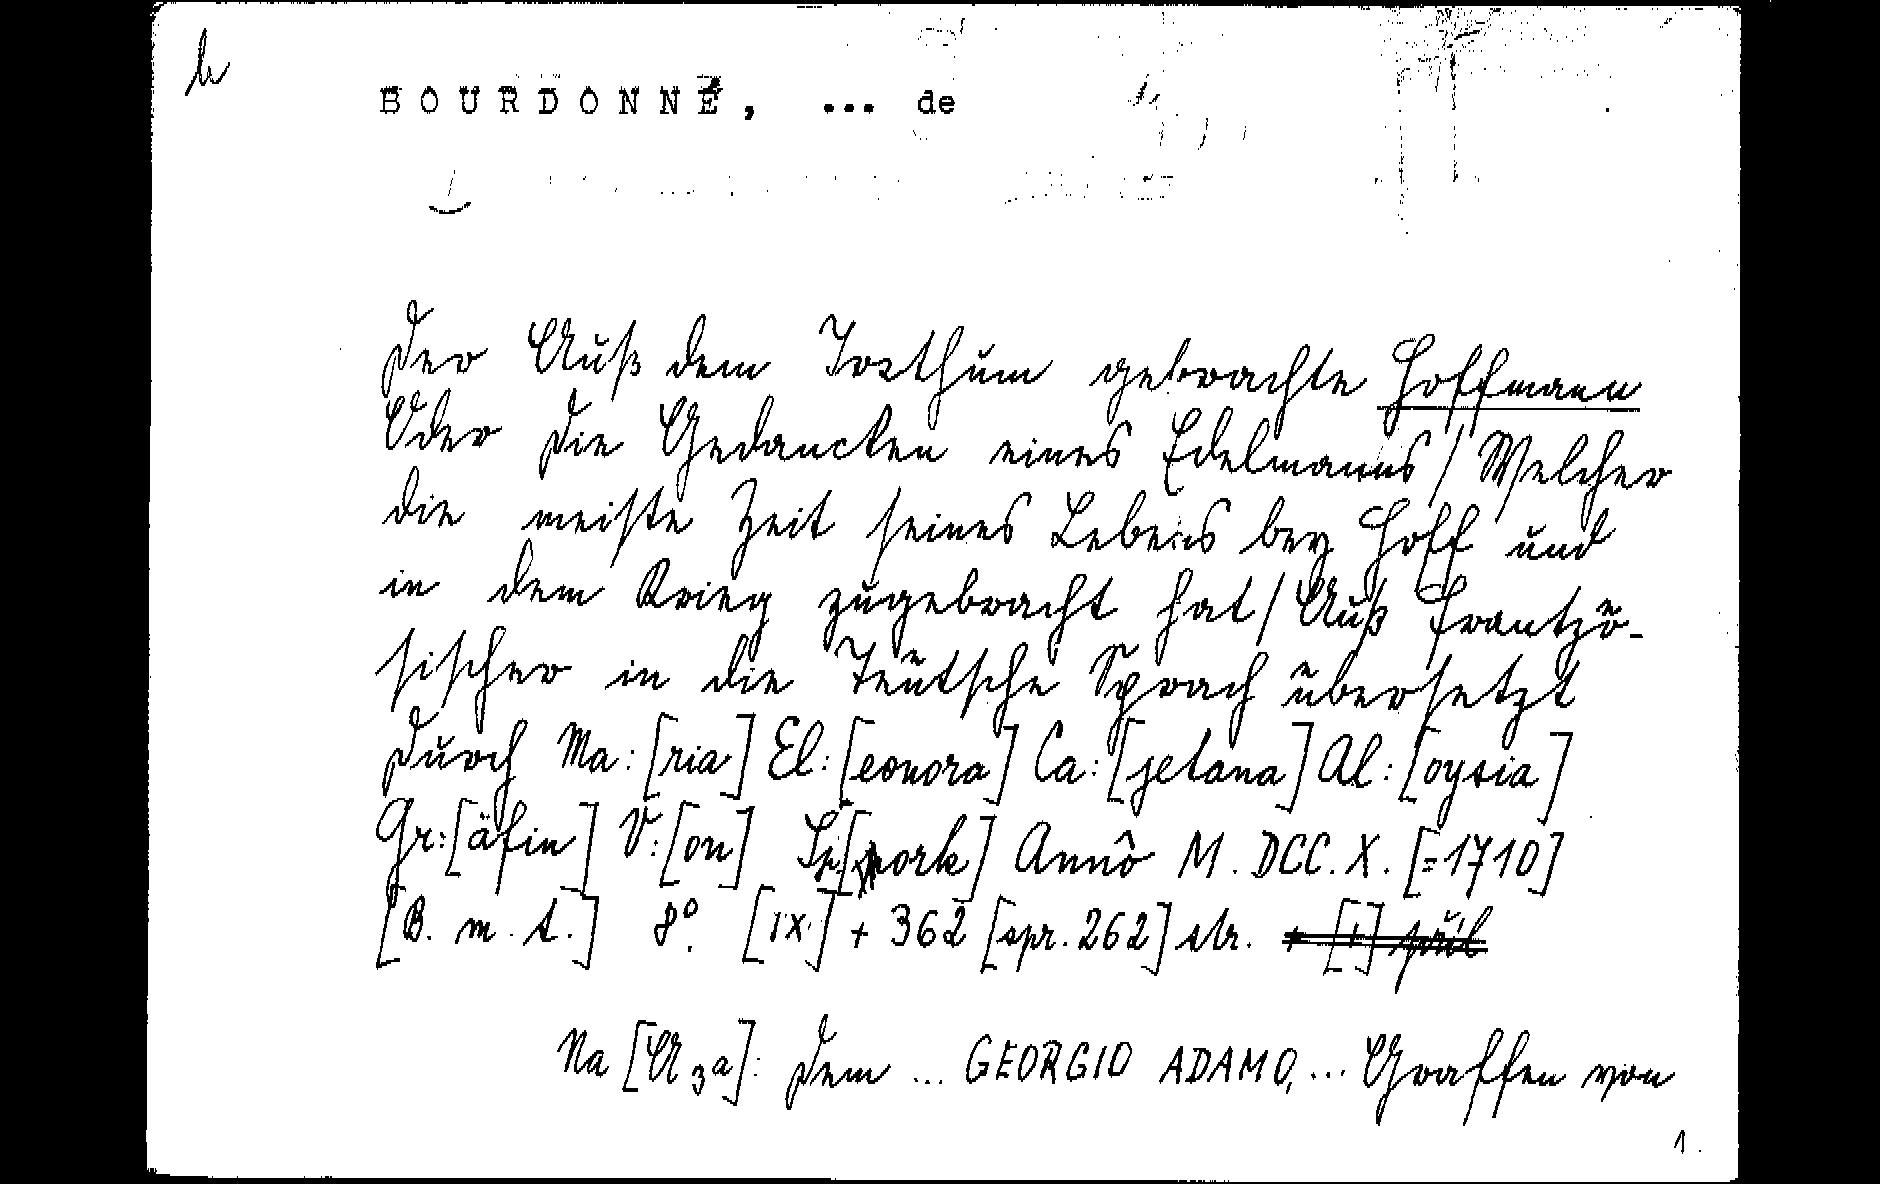 BOURDONNÉ, ... de
Der Auß dem Irrthum gebrachte Hoffmann
Oder Die Gedancken eines Edelmanns / Welcher
die meiste Zeit seines Lebens bey Hoff und
in dem Krieg zugebracht hat / Auß Frantzö-
sischer in die Teütsche Sprach übersetzt
Durch Ma:[ria] El:[eonora] Ca:[jetana] Al:[oysia]
Gr:[äfin] V:[on] Sp[ork] Annô M.DCC.X. [=1710]
[B. m. t.] 8°. [IX] + 362 [spr. 262] str. + [1] příl
Na [A3a]: Dem ... GEORGIO ADAMO, ... Graffen von
1.